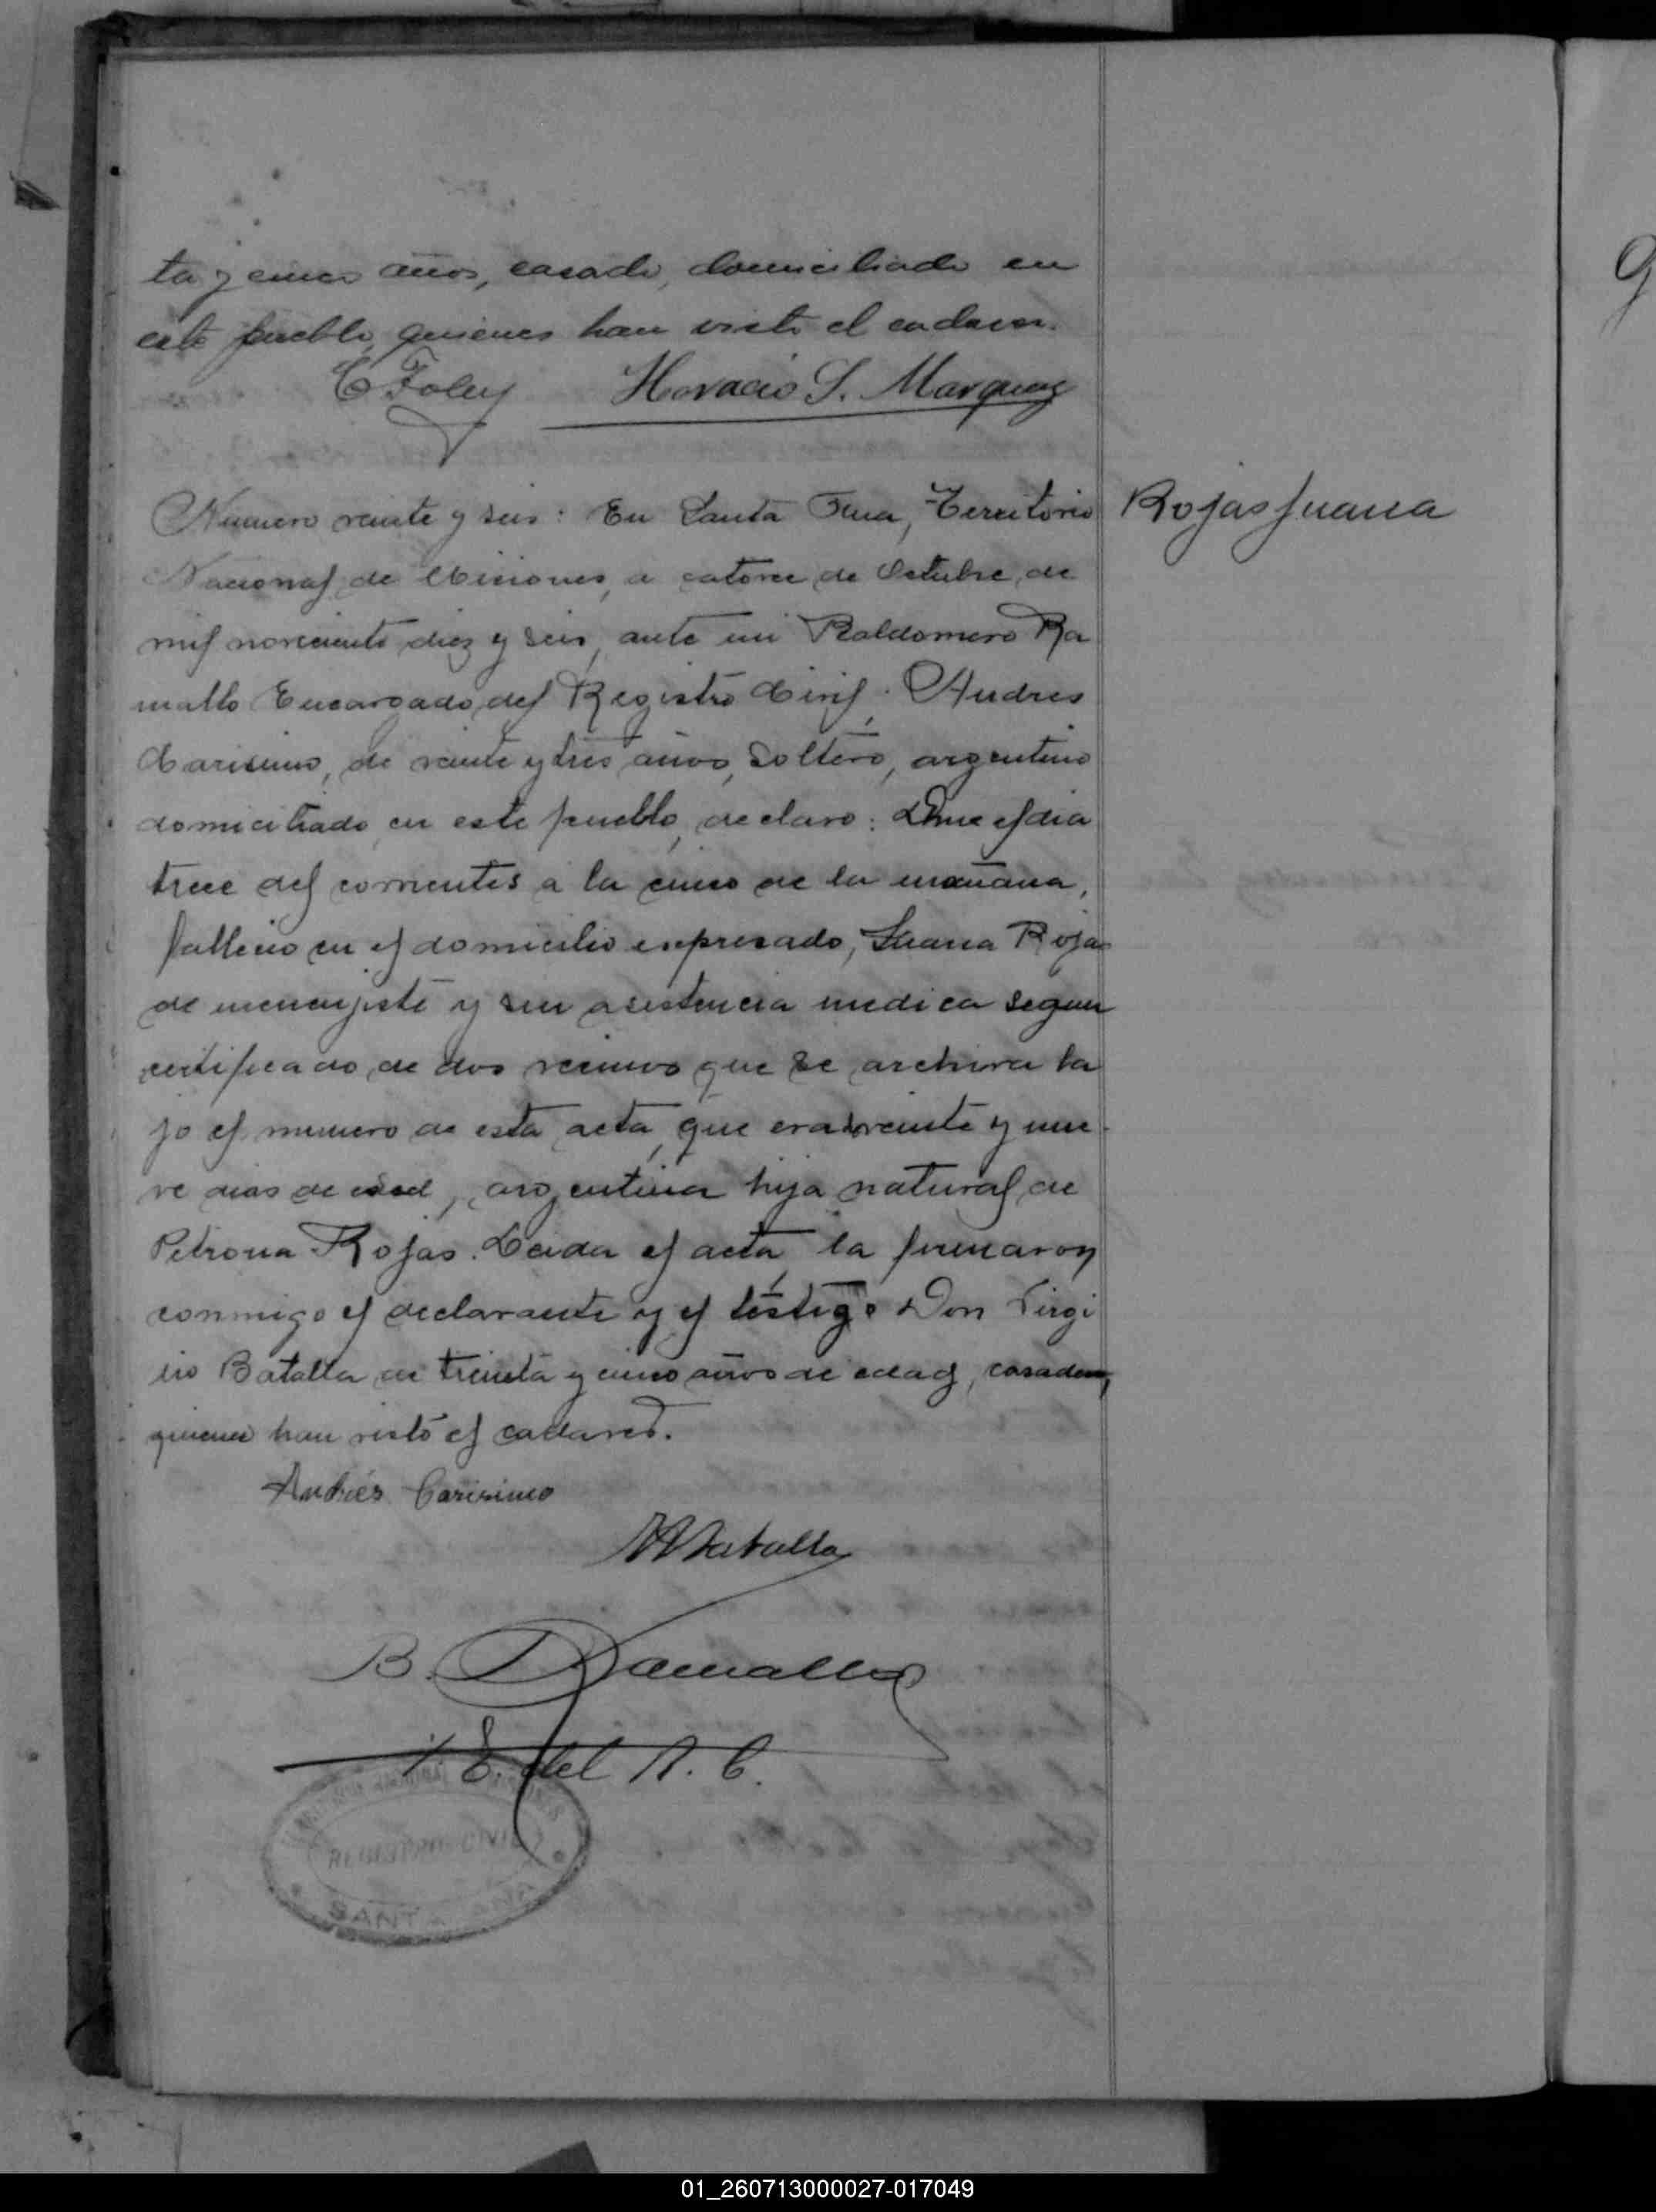 ta y cinco años, casado, domiciliado en
este pueblo, quienes han visto el cadaver.
C Foley Horacio S. Marquez
Numero veinte y seis: En Santa Ana, Territorio
Rojas Juana
Nacional de Misiones, a catorce de Octubre de
mil novecientos diez y seis, ante mi Baldomero Ra
mallo Encargado del Registro Civil. Andres
Carisimo, de veinte y tres años, soltero, argentino
domiciliado en este pueblo, declaro: Que el dia
trece del corrientes a la cinco de la mañana,
fallecio en el domicilio expresado, Juana Rojas
de y sin asistencia medica segun
certificado de dos vecinos que se archiva ba
jo el numero de esta acta, que era de veinte y nue
ve dias de edad, argentina hija natural de
Petrona Rojas. Leida el acta, la firmaron
conmigo el declarante y el testigo Don Virgi
lio Batalla de treinta y cinco años de edad, casado,
quienes han visto el cadaver.
Andrés Carisimo
Batalla
B. Ramallo
E. del R. C.
REGISTRO CIVIL
SANTA ANA
01_260713000027-017049